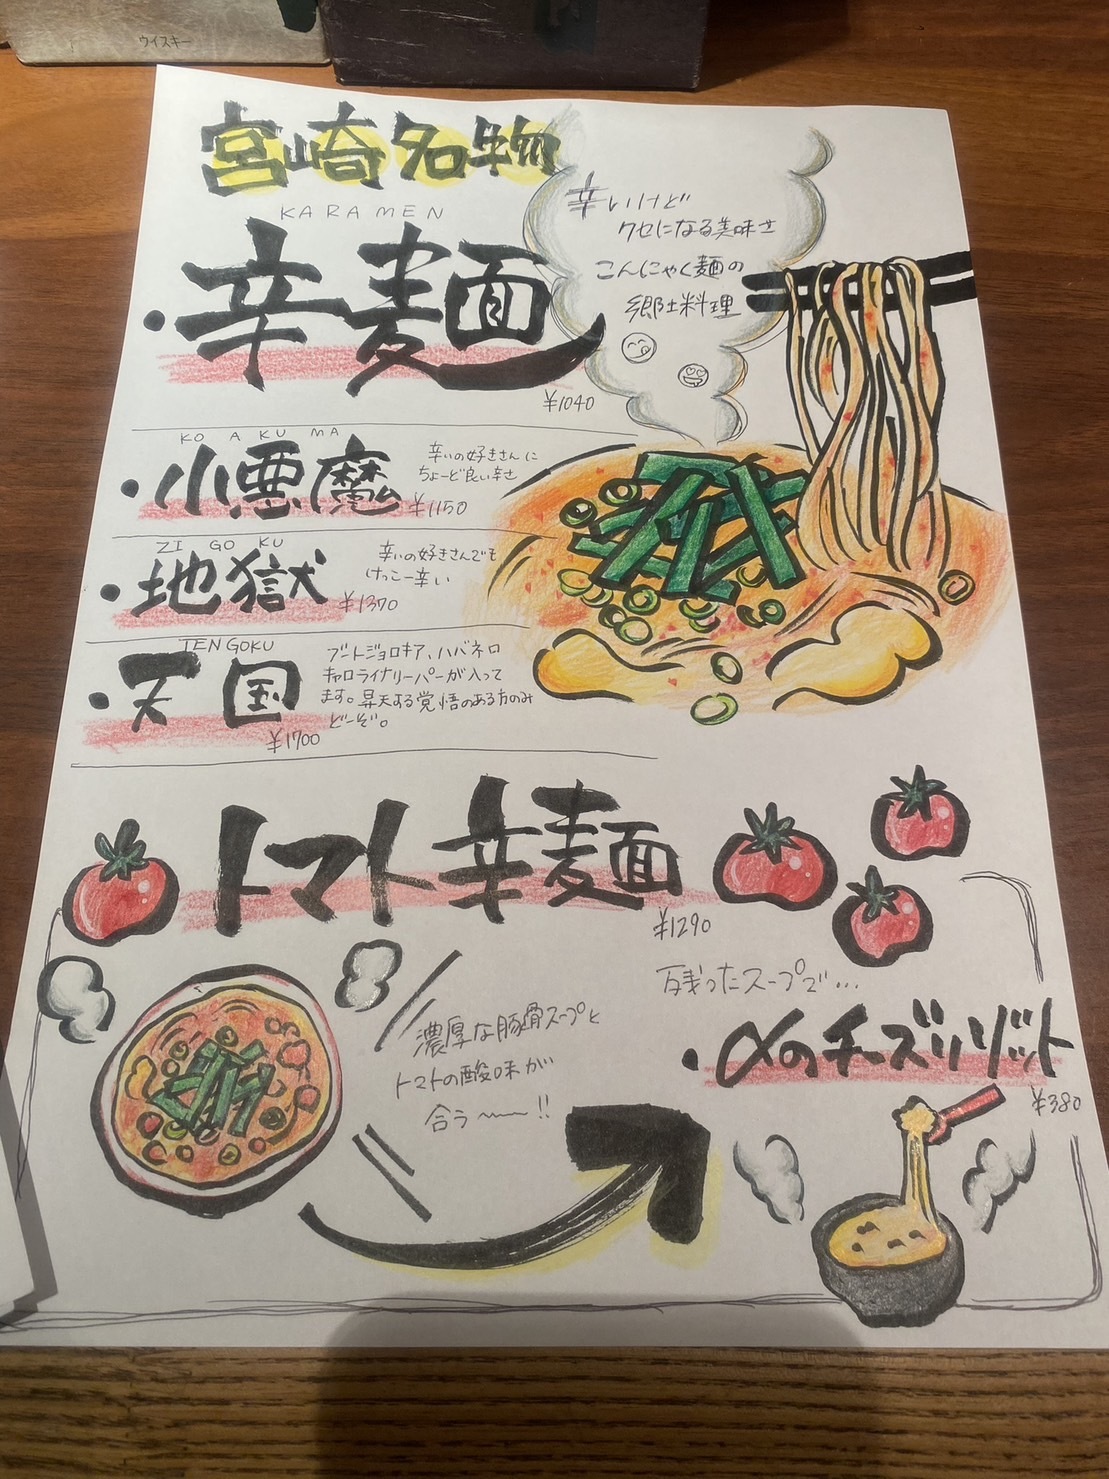 ウイスキー
宮崎名物
KARAMEN
・辛麺
¥1040
辛いけど
クセになる美味さ
こんにゃく麺の
郷土料理
KO A KU MA
・小悪魔
¥1150
辛いの好きさんに
ちょーど良い辛さ
ZI GO KU
・地獄
¥1370
辛いの好きさんでも
けっこー辛い
TENGOKU
・天国
¥1700
ブートジョロキア、ハバネロ
キャロライナリーパーが入って
ます。昇天する覚悟のある方のみ
どーぞ。
トマト辛麺
¥1290
濃厚な豚骨スープと
トマトの酸味が
合う〜〜!!
残ったスープで…
・〆のチーズリゾット
¥380